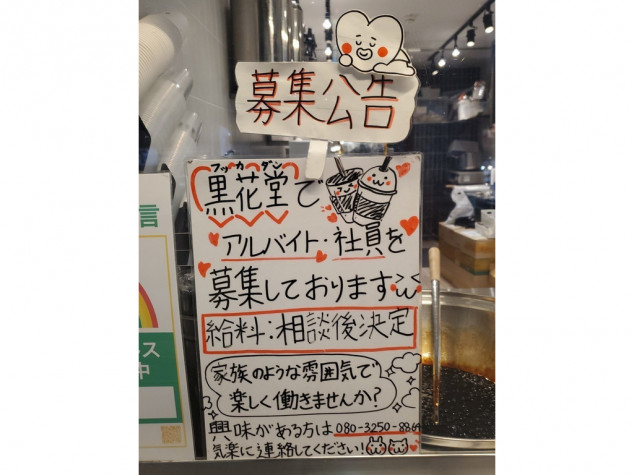 募集公告
フッカダン
黒花堂で
アルバイト・社員を
募集しております
給料:相談後決定
家族のような雰囲気で
楽しく働きませんか?
興味がある方は 080-3250-8869
気楽に連絡してください!
言
ス
中